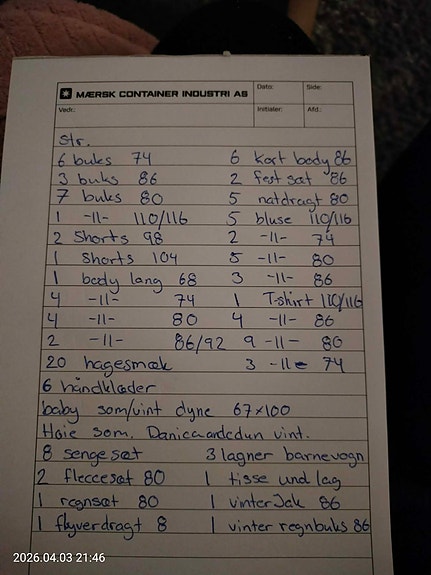 MÆRSK CONTAINER INDUSTRI AS
Dato: Side:
Vedr.: Initialer: Afd.:
Str.
6 buks 74 6 kort body 86
3 buks 86 2 fest sæt 86
7 buks 80 5 natdragt 80
1 -11- 110/116 5 bluse 110/116
2 Shorts 98 2 -11- 74
1 Shorts 104 5 -11- 80
1 body lang 68 3 -11- 86
4 -11- 74 1 T-shirt 110/116
4 -11- 80 4 -11- 86
2 -11- 86/92 9 -11- 80
20 hagesmæk 3 -11- 74
6 håndklæder
baby som/vint dyne 67x100
Høie som. vint.
8 senge sæt 3 lagner barnevogn
2 fleecesæt 80 1 tisse und lag
1 regnsæt 80 1 vinter Jak 86
1 flyverdragt 8 1 vinter regnbuks 86
2026.04.03 21:46